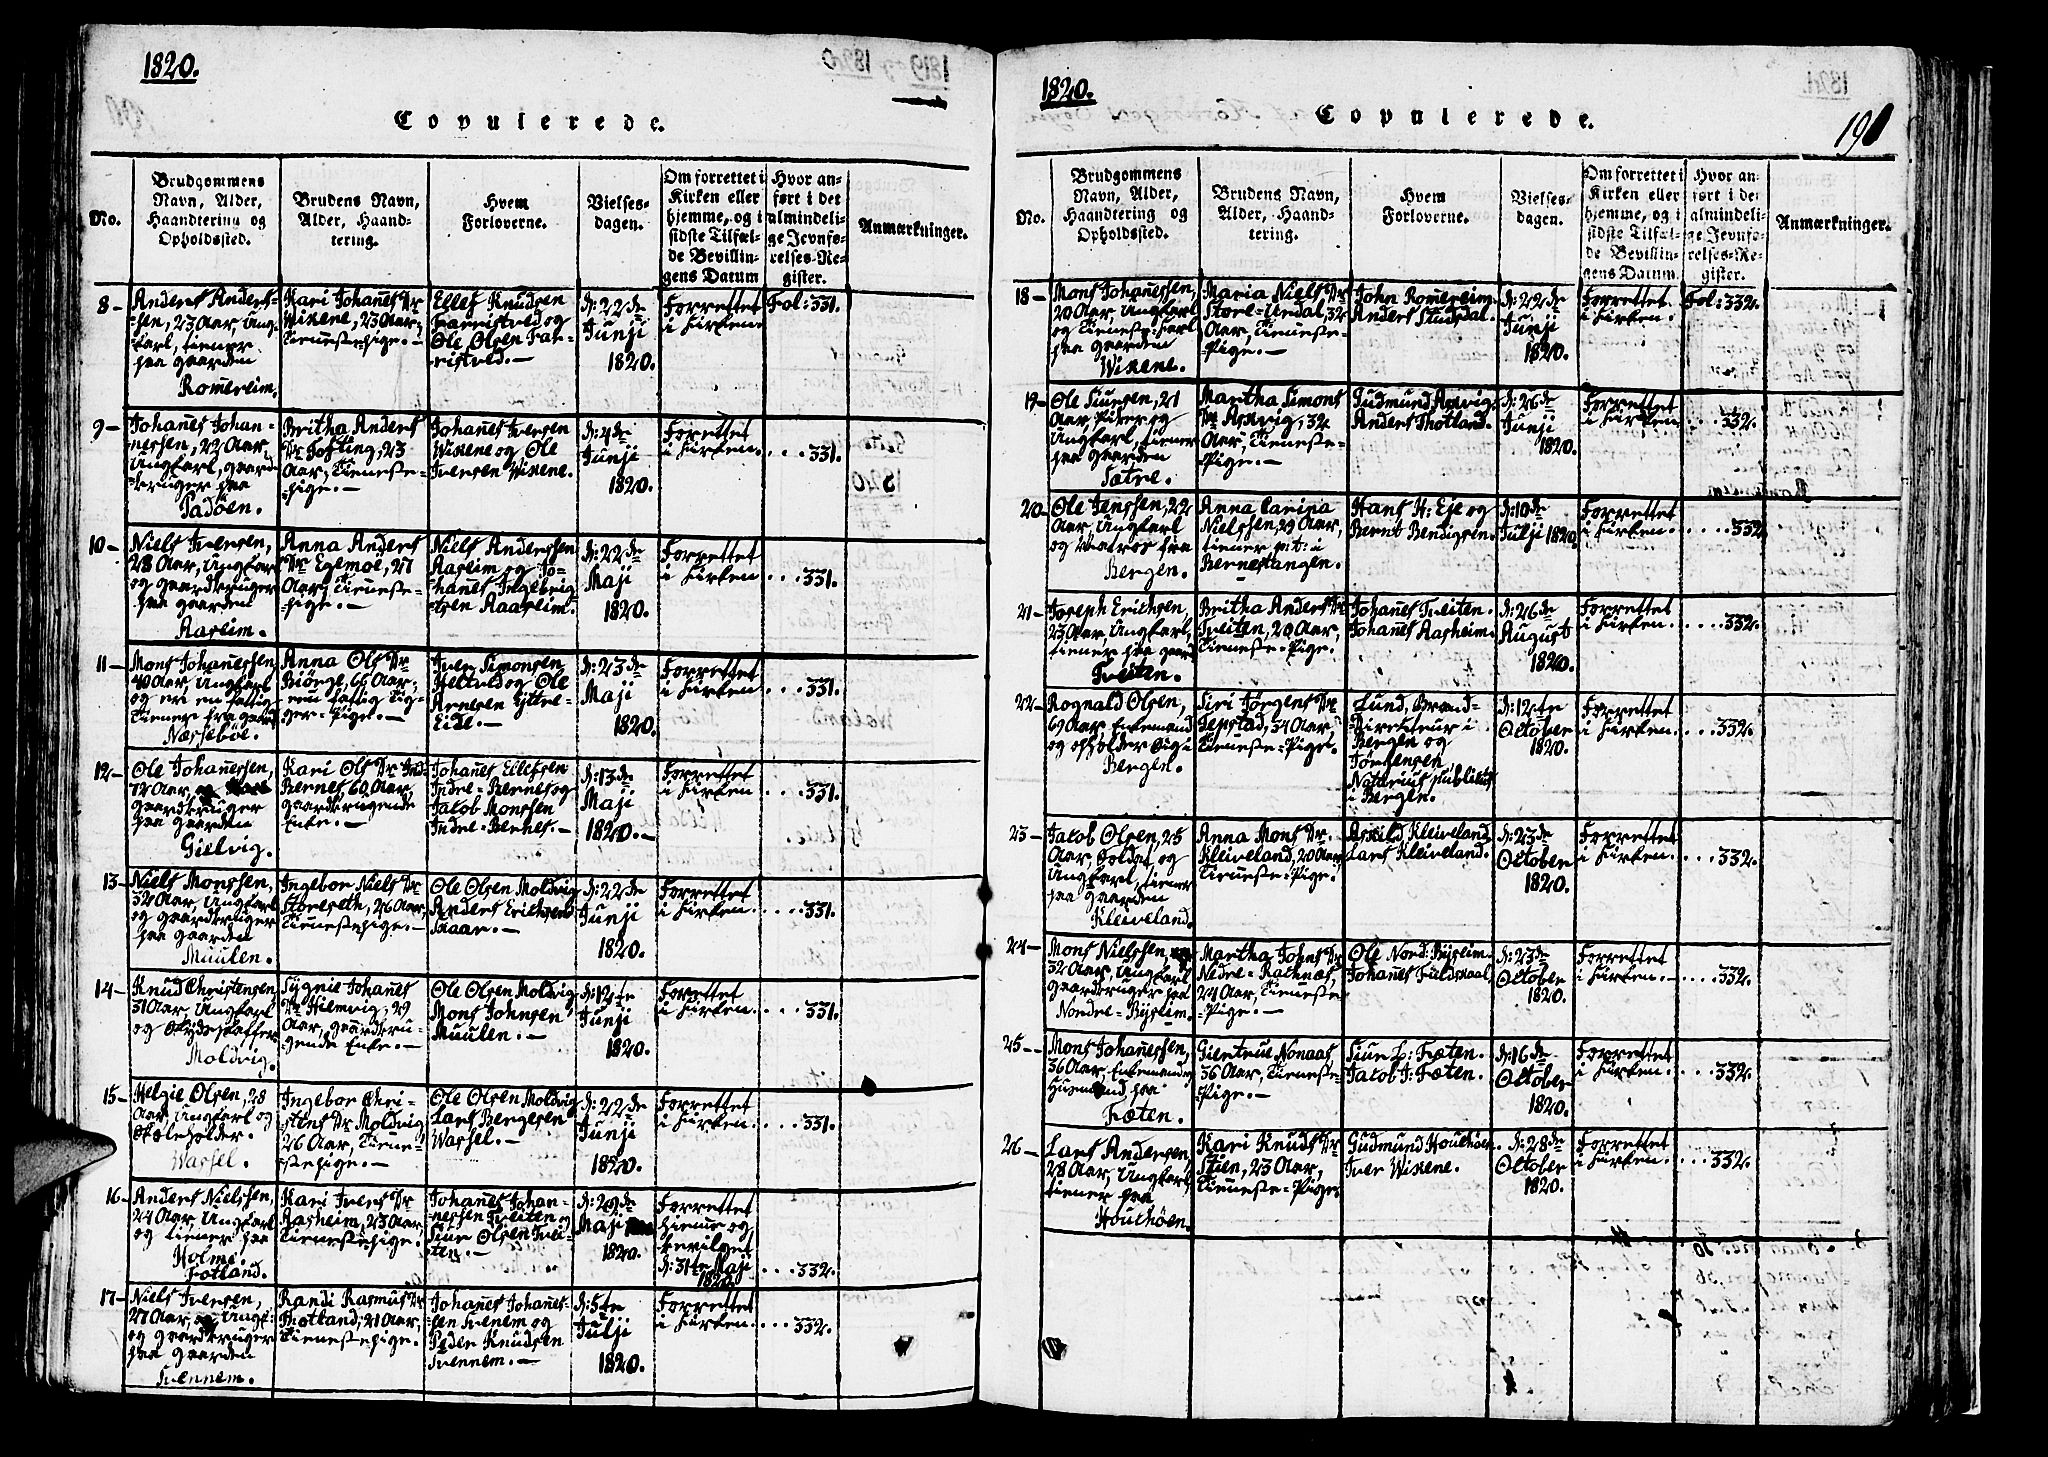 1820.
Copulerede.
No.
Brudgommens Navn, Alder, Haandtering og Opholdssted.
Brudens Navn, Alder, Haandtering.
Hvem Forloverne.
Vielsesdagen.
Om forrettet i Kirken eller hjemme, og i sidste Tilfælde Bevillingens Datum
Hvor anført i det almindelige Jevnførelses-Register.
Anmærkninger.
8-
Anders Anders-
-sen, 23 Aar, Ung-
karl, tiener
paa gaarden
Romereim.
Kari Johanes Dr
Wikene, 23 Aar,
Tienestepige.-
Ellef Knudsen
Farristvedt og
Ole Olsen Far-
ristvedt.-
d: 22de
Junji
1820.
Forrettet
i Kirken.
Fol: 331.
9-
Johanes Johan-
nessen, 22 Aar,
Ungkarl, gaard-
-bruger paa
Padøen.
Britha Anders
Dr Tofting, 23
Aar, Tieneste-
-pige.-
Johanes Iversen
Wikene og Ole
Iversen Wikene.
d: 4de
Junji
1820.
Forrettet
i Kirken.
...331.
10-
Niels Iversen,
28 Aar, Ungkarl
og gaardbruger
paa gaarden
Aareim.
Anna Anders
Dr Egemoe, 27
Aar, Tieneste-
-pige.-
Niels Anderssen
Aareim og Jo-
hanes Ingebrig-
-tsen Aareim.
d: 22de
Maji
1820.
Forrettet
i Kirken.
...331.
11-
Mons Johanessen
40 Aar, Ungkarl
og er en fattig
Tiener fra gaard
Næssebøe.
Anna Ols Dr
Biørge, 66 Aar,
en fattig Tig-
ger-Pige.-
Iver Simonsen
og Ole
Arnesen Yttre-
Eide.-
d: 23de
Maji
1820.
Forrettet
i Kirken.
...331.
12-
Ole Johanessen,
72 Aar,
gaardbruger
paa gaarden
Gielvig.
Kari Ols Dr Ind:
Bernes, 60 Aar,
gaardbrugende
Enke.-
Johanes Ellefsen
Indre-Bernes og
Jacob Monssen
Indre-Bernes.-
d: 13de
Maji
1820.-
Forrettet
i Kirken.
...331.
13-
Niels Monssen,
32 Aar, Ungkarl
og gaardbruger
paa gaarden
Muulen.
Ingebor Niels Dr
Storseth, 26 Aar,
Tienestepige.-
Ole Olsen Moldvig
Anders Erichsen
Skaar.-
d: 22de
Junji
1820.
Forrettet
i Kirken.
...331.
14-
Knud Christensen
31 Aar, Ungkarl
og Skydsskaffer
Moldvig.
Sygnie Johanes
Dr Hiemvig, 29
Aar, gaardbru-
gende Enke.-
Ole Olsen Moldvig
Mons Johnsen
Muulen.-
d: 12te
Junji
1820.
Forrettet
i Kirken.
...331.
15-
Helgie Olsen, 28
Aar, Ungkarl og
Skoleholder.
Wassel.
Ingebor Chri-
stens Dr Moldvig
26 Aar, Tiene-
-stepige.-
Ole Olsen Moldvig
Lars Bergesen
Wassel.-
d: 22de
Junji
1820.
Forrettet
i Kirken.
...331.
16-
Anders Nielssen,
24 Aar, Ungkarl
og tiener paa
Holme.
Fotland.
Kari Ivers Dr
Aasheim, 23 Aar,
Tienestepige.
Johanes Johan-
nessen Tveiten og
Siur Olsen Tvei-
-ten.-
d: 29de
Maji
1820.
Forrettet
hieme og
bevilget
d: 31te Maji
1820.
...332.
17-
Niels Iversen,
27 Aar, Ungk:
og gaardbruger
paa gaarden
Tvennem.
Randi Rasmus Dr
Thotland, 21 Aar,
Tienestepige.
Johanes Johanes-
-sen Tvenem og
Peder Knudsen
Tvennem.-
d: 5te
Julji
1820.
Forrettet
i Kirken.
...332.
1820.
Copulerede.
No.
Brudgommens Navn, Alder, Haandtering og Opholdssted.
Brudens Navn, Alder, Haandtering.
Hvem Forloverne.
Vielsesdagen.
Om forrettet i Kirken eller hjemme, og i sidste Tilfælde Bevillingens Datum.
Hvor anført i det almindelige Jevnførelses-Register.
Anmærkninger.
18-
Mons Johanessen,
20 Aar, Ungkarl
og Tieneste-karl
paa gaarden
Wikene.
Maria Niels Dr
Store-Urdal, 32
Aar, Tieneste-
-Pige.-
John Romereim.
Anders Studsdal.
d: 22de
Junji
1820.
Forrettet
i Kirken.
Fol: 332.
19-
Ole Siursen, 21
Aar, og
Ungkarl, tiener
paa gaarden
Sætre.
Martha Simons
Dr Askvig, 32
Aar, Tieneste-
-Pige.-
Gudmund Askvig.
Anders Thotland.
d: 26de
Junji
1820.
Forrettet
i Kirken.
...332.
20-
Ole Jenssen, 22
Aar, Ungkarl
og Matros fra
Bergen.
Anna Carina
Nielssen, 29 Aar,
tiener p:t: i
Bernestangen.
Hans H: Eje og
Bernt Bendigsen.
d: 10de
Julji 1820.
Forrettet
i Kirken.
...332.
21-
Joseph Erichsen,
23 Aar, Ungkarl,
tiener paa gaard
Tveiten.
Britha Anders Dr
Tveiten, 20 Aar,
Tieneste-Pige.
Johanes Tveiten.
Johanes Aasheim.
d: 26de
August
1820.
Forrettet
i Kirken.
...332.
22-
Rognald Olsen,
69 Aar, Enkemand
og opholder sig i
Bergen.
Siri Jørgens Dr
Repstad, 34 Aar,
Tieneste-Pige.
Lund, Brand-
-Directeur i
Bergen og
Jørgensen
Notarius publicus
i Bergen.
d: 12te
October
1820.
Forrettet
i Kirken.
...332.
23-
Jacob Olsen, 25
Aar, Soldat, og
Ungkarl, tiener
paa gaarden
Kleiveland.
Anna Mons Dr
Kleiveland, 20 Aar,
Tieneste-Pige.
Arnild Kleiveland.
Lars Kleiveland.
d: 23de
October
1820.
Forrettet
i Kirken.
...332.
24-
Mons Nielssen,
32 Aar, Ungkarl
gaardbruger paa
Nordre-Byseim.
Martha Johns Dr
Nedre-Kathnæs,
24 Aar, Tieneste-
-Pige.-
Ole Nord: Byseim.
Johanes Fieldskaal.
d: 23de
October
1820.
Forrettet
i Kirken.
...332.
25-
Mons Johanessen,
36 Aar, Enkemand og
Huusmand paa
Fæten.
Giertrue Nonaas
36 Aar, Tieneste-
-Pige.-
Siur L: Fæten.
Jacob J: Fæten.
d: 16de
October
1820.
Forrettet
i Kirken.
...332.
26-
Lars Andersen,
28 Aar, Ungkarl
tiener paa
Houthoen.
Kari Knuds Dr
Stien, 23 Aar,
Tieneste-Pige
Gudmund Houthoen.
Iver Wikene.
d: 28de
October
1820.
Forrettet
i Kirken.
...332.